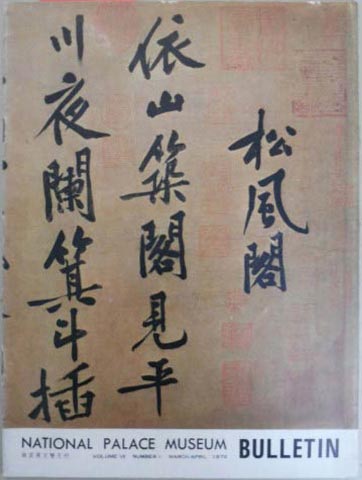 松風閣
依山築閣見平
川夜闌箕斗插
NATIONAL PALACE MUSEUM BULLETIN
VOLUME VI NUMBER 1 MARCH-APRIL 1971